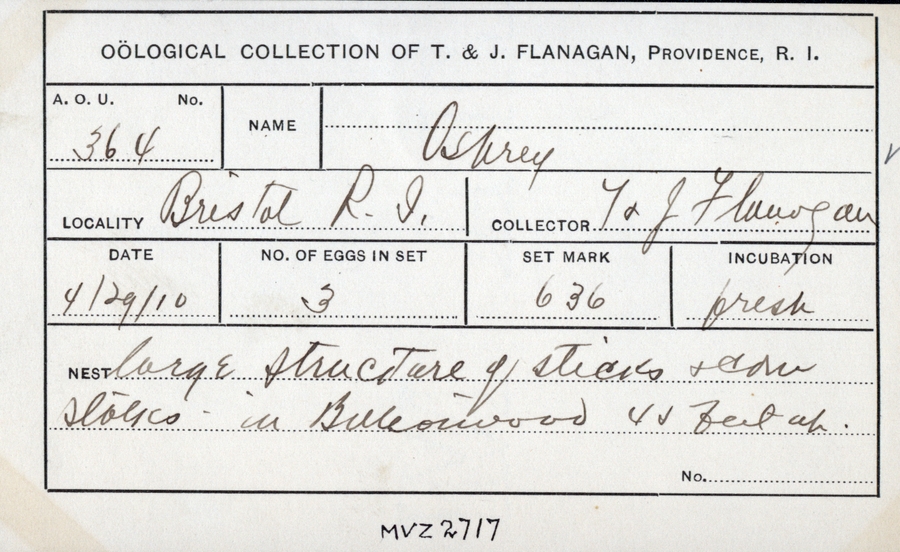 OÖLOGICAL COLLECTION OF T. & J. FLANAGAN, PROVIDENCE, R. I.
A. O. U. No. 364
NAME Osprey
LOCALITY Bristol R. I.
COLLECTOR T & J Flanagan
DATE 4/29/10
NO. OF EGGS IN SET 3
SET MARK 636
INCUBATION fresh
NEST large structure of sticks & corn
stalks - in Buttonwood feet up.
No.
MVZ 2717